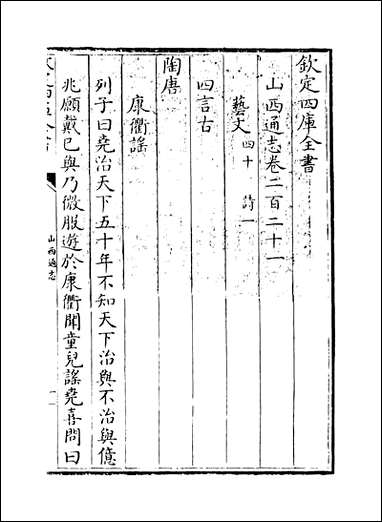 欽定四庫全書
山西通志卷二百二十一
藝文 四十 詩一
四言古
陶唐
康衢謡
列子曰堯治天下五十年不知天下治與不治與億
兆願戴已與乃微服遊於康衢聞童兒謡堯喜問曰
山西通志
一